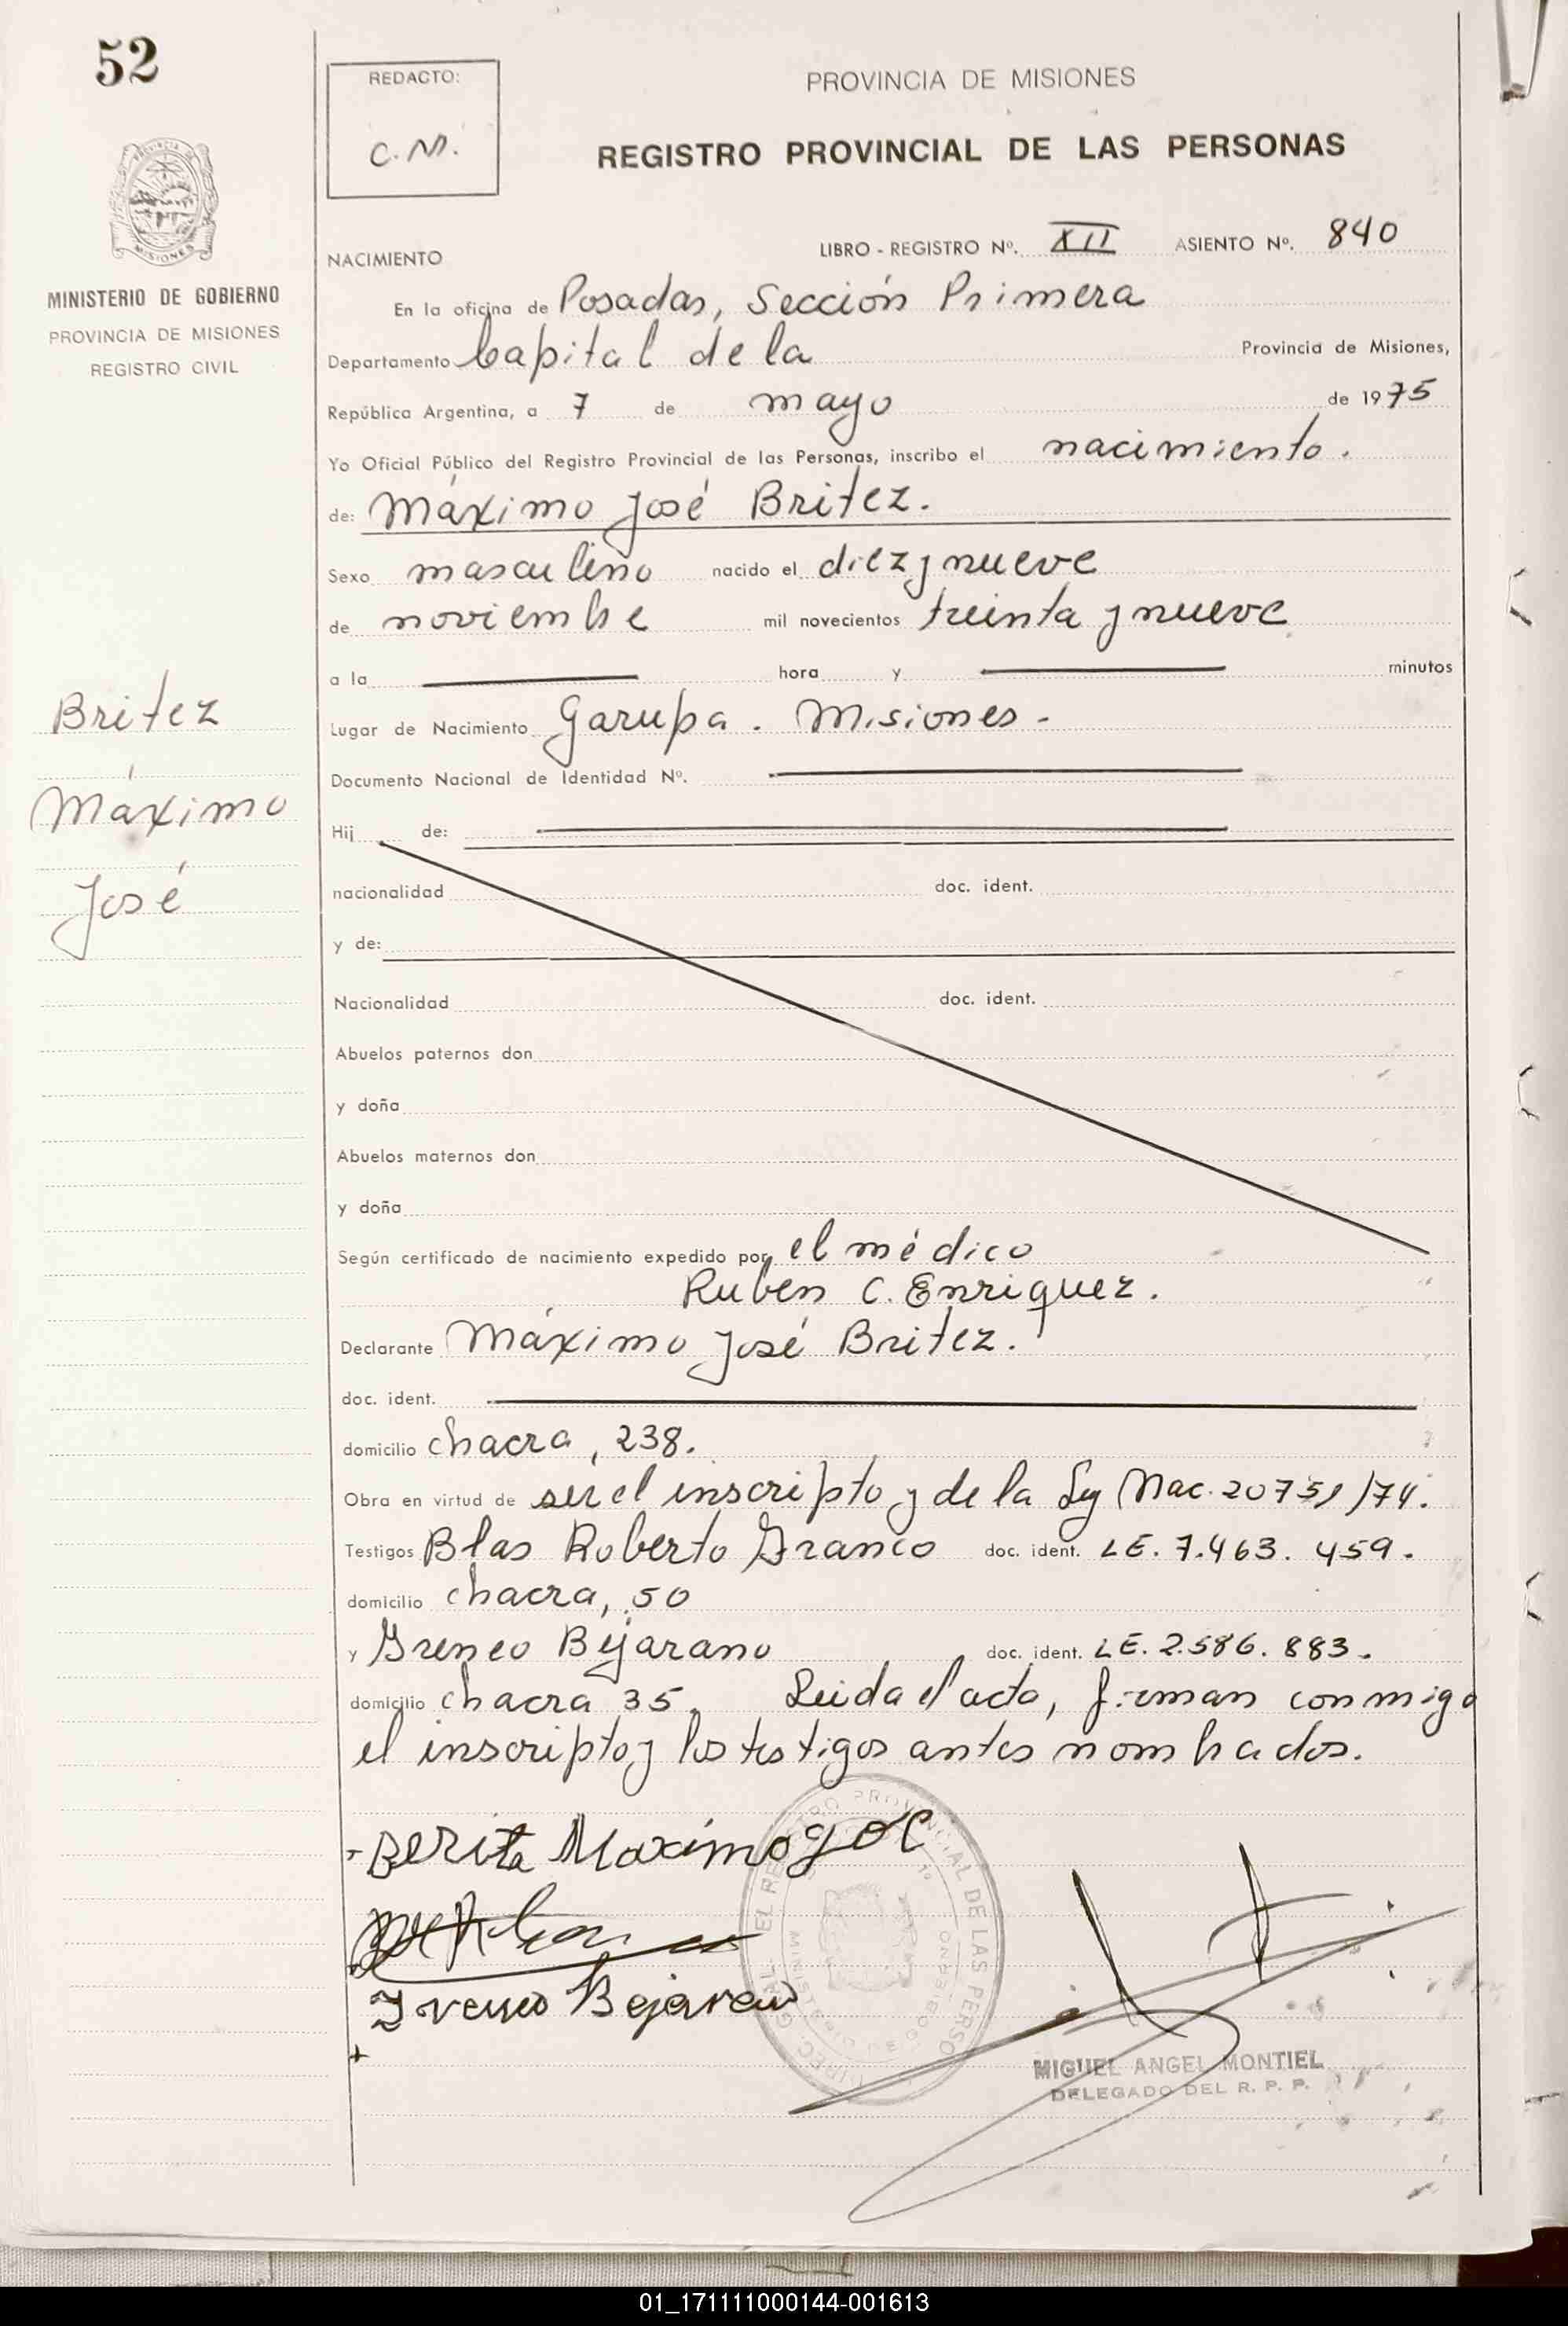 52
REDACTO:
C.M.
PROVINCIA DE MISIONES
REGISTRO PROVINCIAL DE LAS PERSONAS
MISIONES
MINISTERIO DE GOBIERNO
PROVINCIA DE MISIONES
REGISTRO CIVIL
NACIMIENTO LIBRO - REGISTRO Nº. XII ASIENTO Nº. 840
En la oficina de Posadas, Sección Primera
Departamento Capital de la Provincia de Misiones,
República Argentina, a 7 de mayo de 1975
Yo Oficial Público del Registro Provincial de las Personas, inscribo el nacimiento.
de: Máximo José Britez.
Sexo masculino nacido el diez y nueve
de noviembre mil novecientos treinta y nueve
a la hora y minutos
Britez
Máximo
José
Lugar de Nacimiento Garupa. Misiones-
Documento Nacional de Identidad Nº.
Hij de:
nacionalidad doc. ident.
y de:
Nacionalidad doc. ident.
Abuelos paternos don
y doña
Abuelos maternos don
y doña
Según certificado de nacimiento expedido por el médico
Ruben C. Enriquez.
Declarante Máximo José Britez.
doc. ident.
domicilio chacra, 238.
Obra en virtud de ser el inscripto y de la Ley Nac. 20751/74.
Testigos Blas Roberto Franco doc. ident. LE. 7.463.459.
domicilio chacra, 50
y Ireneo Bejarano doc. ident. LE. 2.586.883.
domicilio chacra 35. Leida el acta, firman conmigo
el inscripto y los testigos antes nombrados.
Berite Maximo
Ireneo Bejarano
MIGUEL ANGEL MONTIEL
DELEGADO DEL R. P. P.
01_171111000144-001613